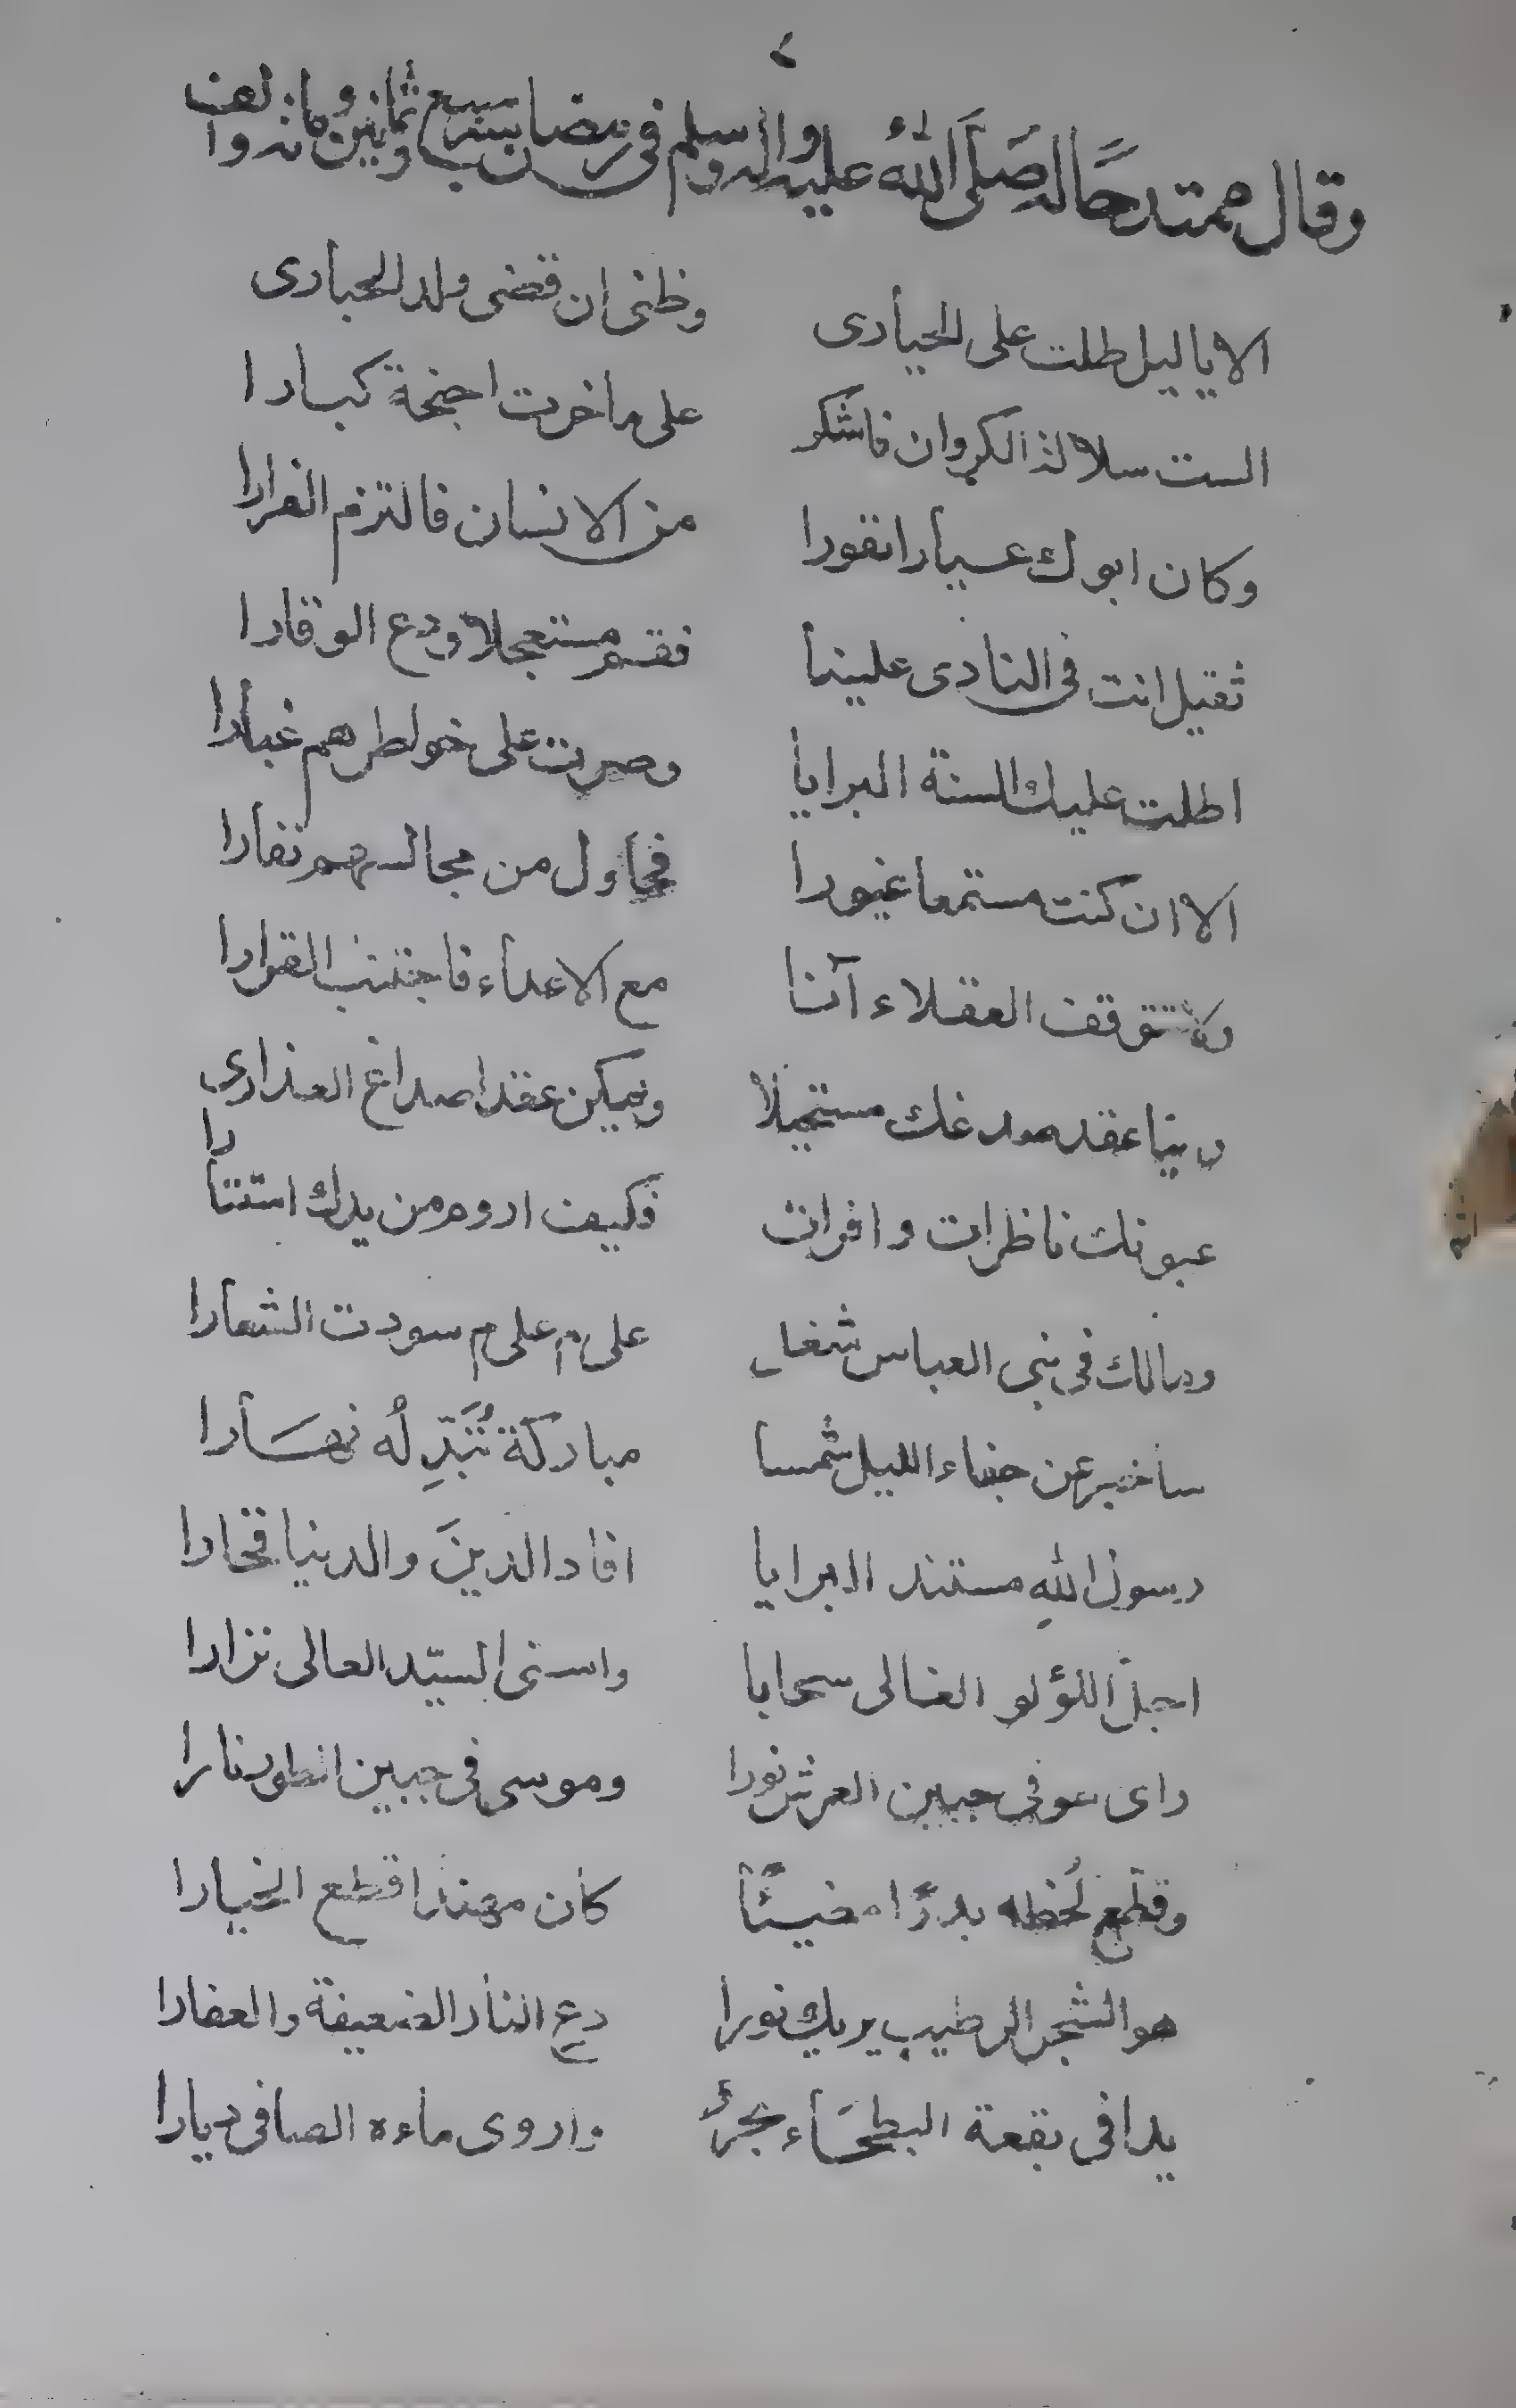 ٢
وقال ممتدحا له صَلَّى اللهُ عليه واله وسلم في رمضان سنة سبع وثمانين ومائة والف
الا يا ليل طلت على الحيارى وظنى ان قضى ولد الحبارى
الست سلالة الكروان فاشكر على ما خرت اجنحة كبارا
وكان ابوك عيارا نفورا من الانسان فالتزم الفرارا
ثقيل انت فى النادى علينا فقم مستعجلا ودع الوقارا
اطلت عليك السنة البرايا وصرت على خواطرهم غبارا
الا ان كنت مستمعا غيورا فحاول من مجالسهم نفارا
ولا تتوقف العقلاء آنا مع الاعداء فاجتنب القرارا
رينا عقد صدغك مستحيلا ويمكن عقد اصداغ العذارى
عيونك ناظرات وافرات فكيف اروم من يدك استتارا
ومالك فى بنى العباس شغل على م على م سودت الشعارا
ساخبر عن جفاء الليل شمسا مباركة تُبَدِّلُه نهَارا
رسول اللهِ مستند البرايا افاد الدينَ والدنيا فخارا
اجلّ اللؤلؤ الغالى سحابا واسنى السيّد العالى نزارا
راى هو فى جبين العرش نورا وموسى فى جبين الطور نارا
وقطّع لَحْظه بدرًا مضيئًا كان مهندا قطع الخيارا
هو الشجر الرطيب يريك نورا دع النار الضعيفة والعفارا
بدا فى بقعة البطحَاء بحرٌ واروى ماءه الصافى ديارا